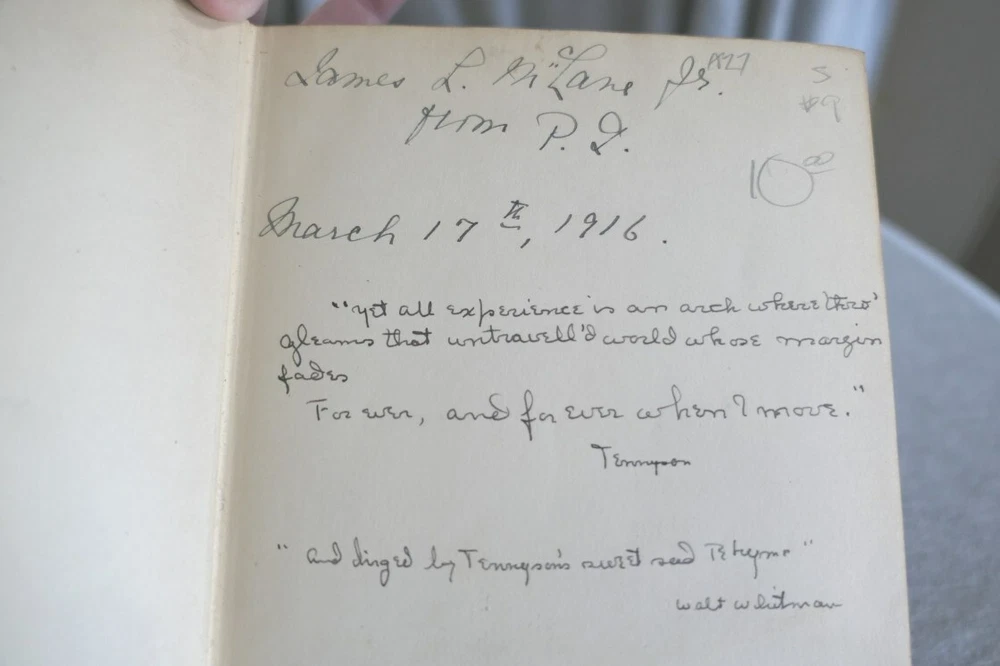 James L. McLane Jr.
S
#9
from P. D.
10 00
March 17th, 1916.
"yet all experience is an arch where thro'
gleams that untravell'd world whose margin
fades
For ever, and for ever when I move."
Tennyson
"and dirged by Tennyson's sweet sad Rhyme"
Walt Whitman